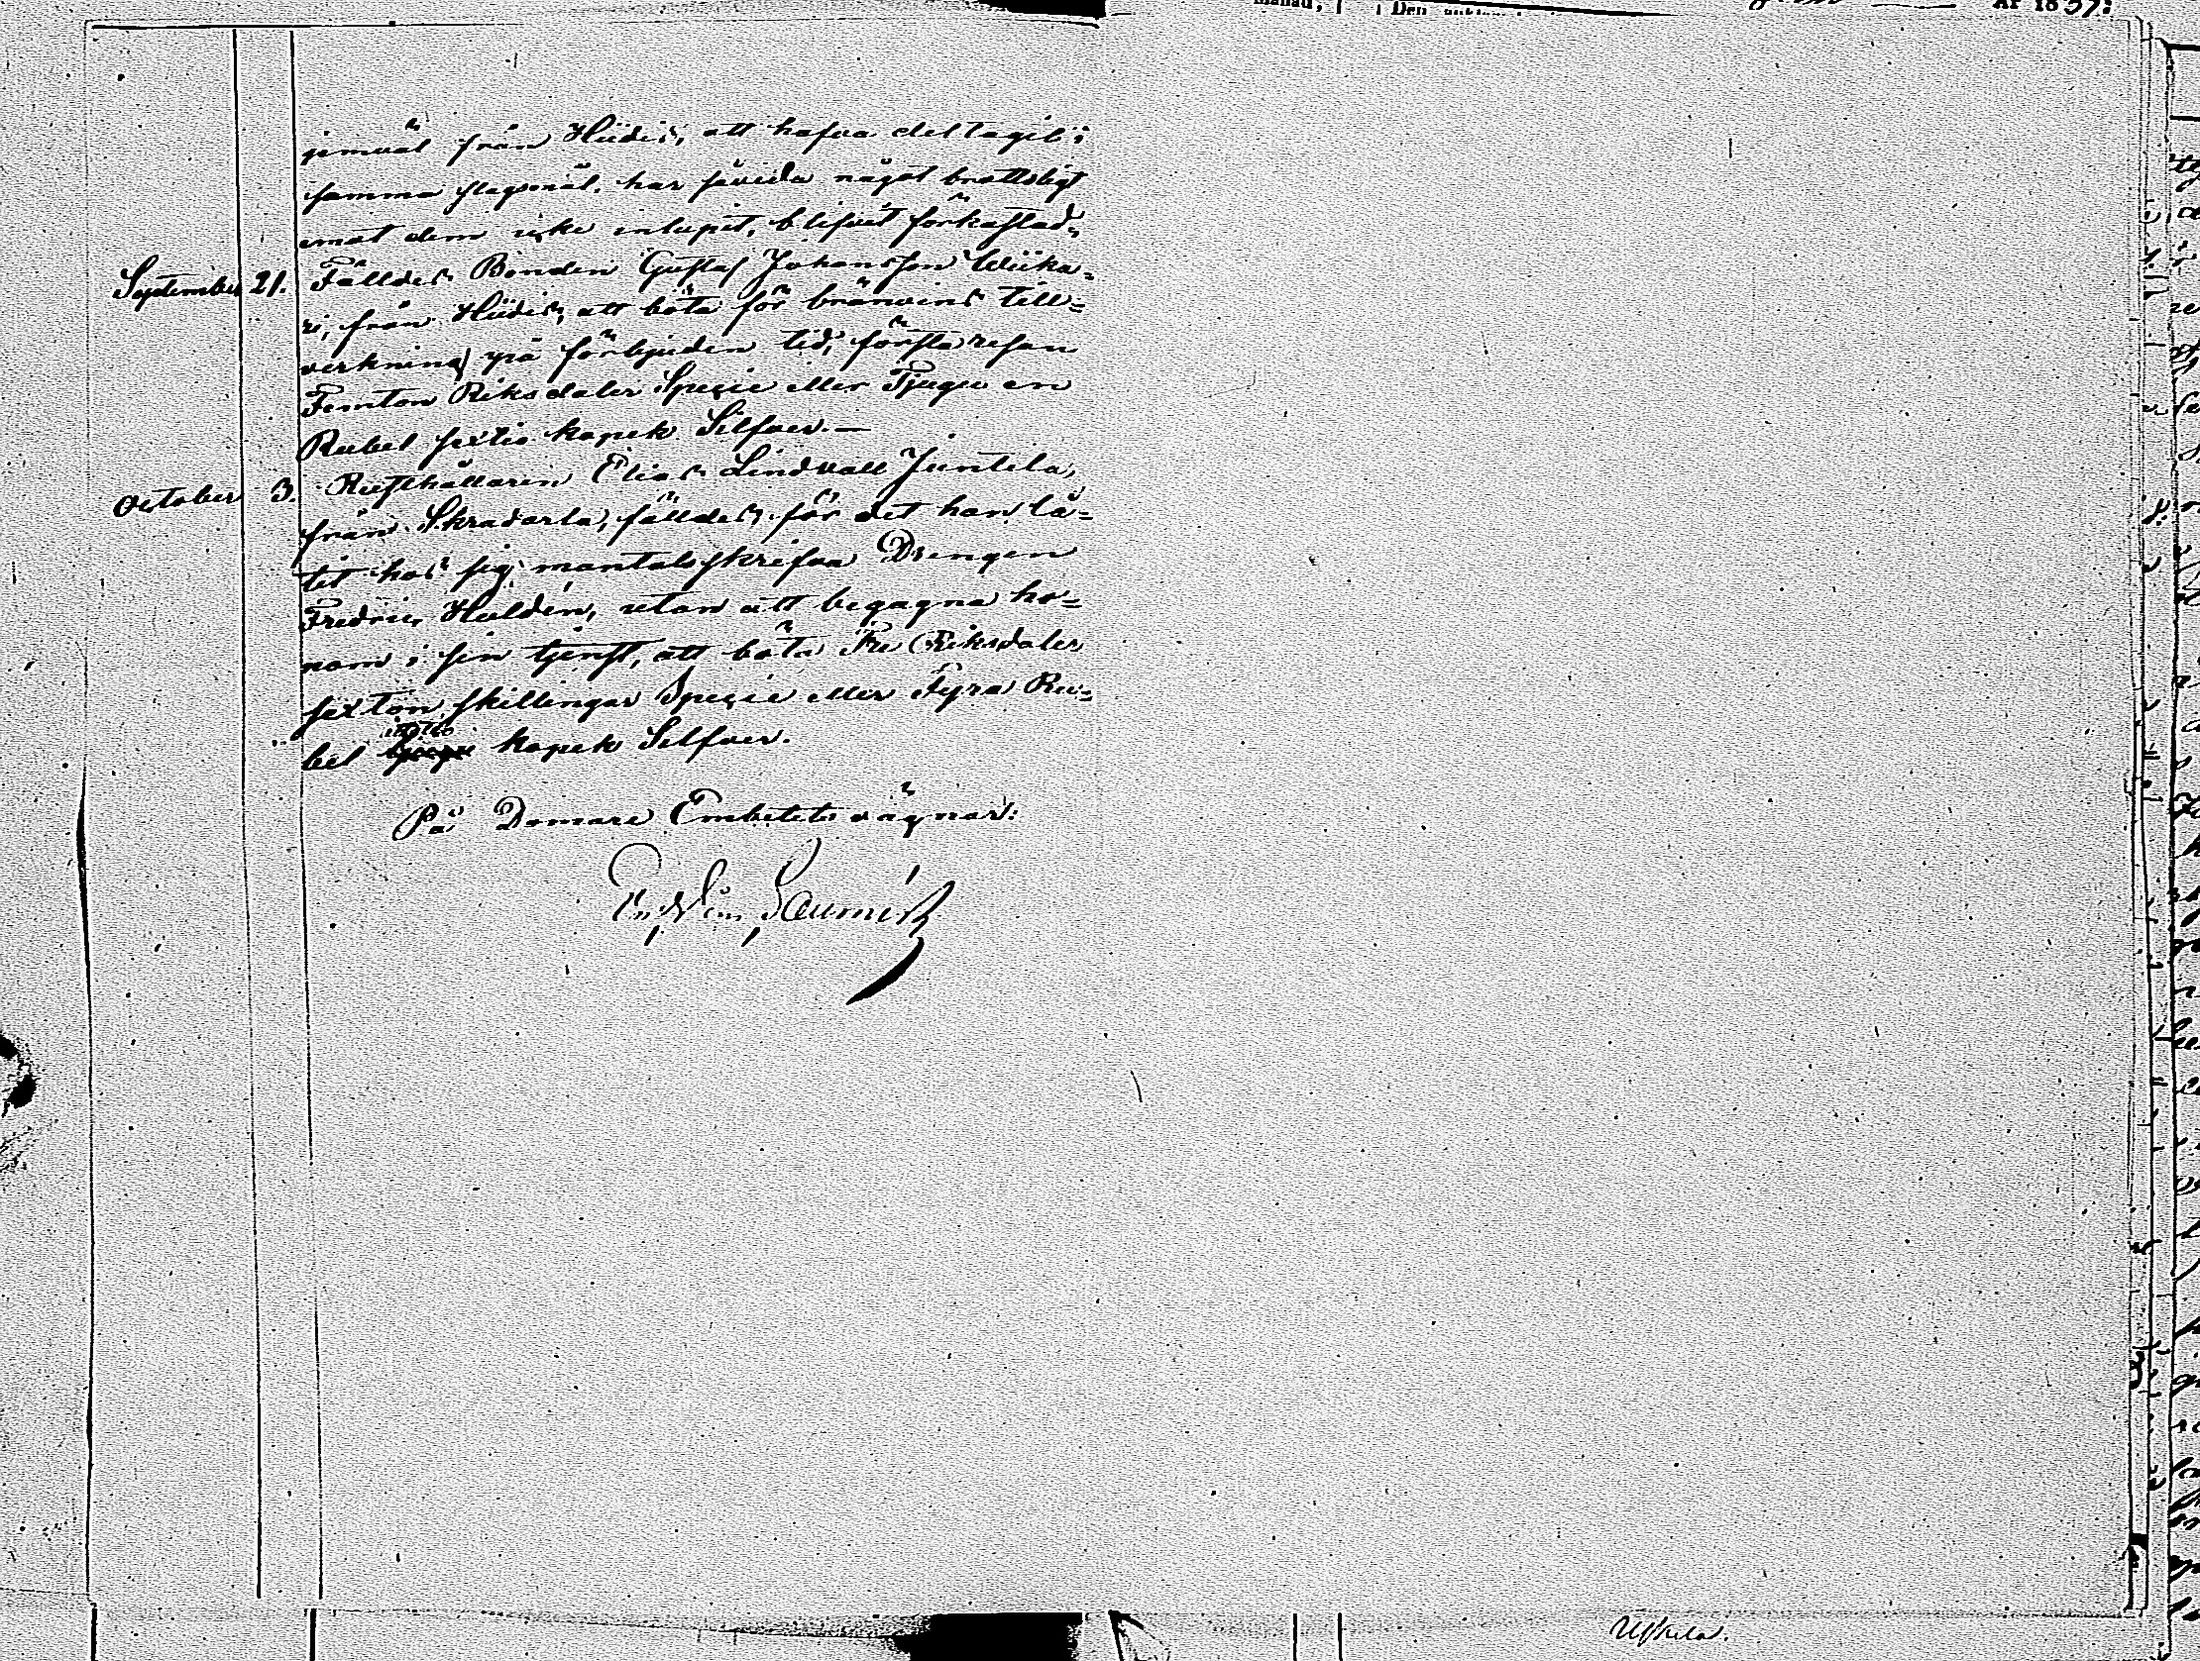 månad,
Den
År 1857.
jemväl från Hiidis, att hafva deltagit i
samma slagsmål, har såvida något brottsligt
emot dem icke inlupit, blifvit förkastad.
September 21. Fälldes Bonden Gustaf Johansson Wiika-
ri, från Hiidis, att böta för bränvins till-
verkning på förbjuden tid, första resan
Femton Riksdaler Specie eller Tjugu en
Rubel sextio kopek Silfver.—
October 3. Rusthållaren Elias Lindvall Juntila,
från Skradarla, fälldes, för det han lå-
tit hos sig mantalsskrifva Drengen
Fredric Huldén, utan att begagna ho-
nom i sin tjenst, att böta Tre Riksdaler
sexton skillingar Specie eller Fyra Ru-
bel åttatio kopek Silfver.
På Domare Embetets vägnar:
Uskela.